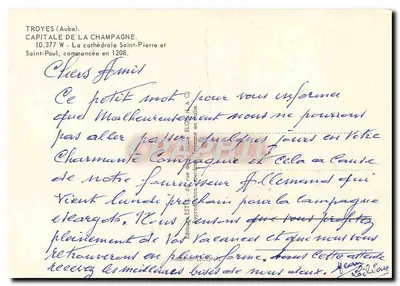 TROYES (Aube).
CAPITALE DE LA CHAMPAGNE.
10.377 W - La cathédrale Saint-Pierre et
Saint-Paul, commencée en 1208.
Chers Amis
Ce petit mot, pour vous informer
que Malheureusement nous ne pourrons
pas aller passer quelques jours en Votre
Charmante Compagnie et Cela a Cause
de notre fournisseur Allemand qui
Vient lundi prochain pour la Campagne
escargots. Nous pensons que vous profitez
pleinement de Vos Vacances et que nous vous
retrouverons en pleine forme. Dans cette attente
recevez les meilleures bises de nous deux.
Liliane